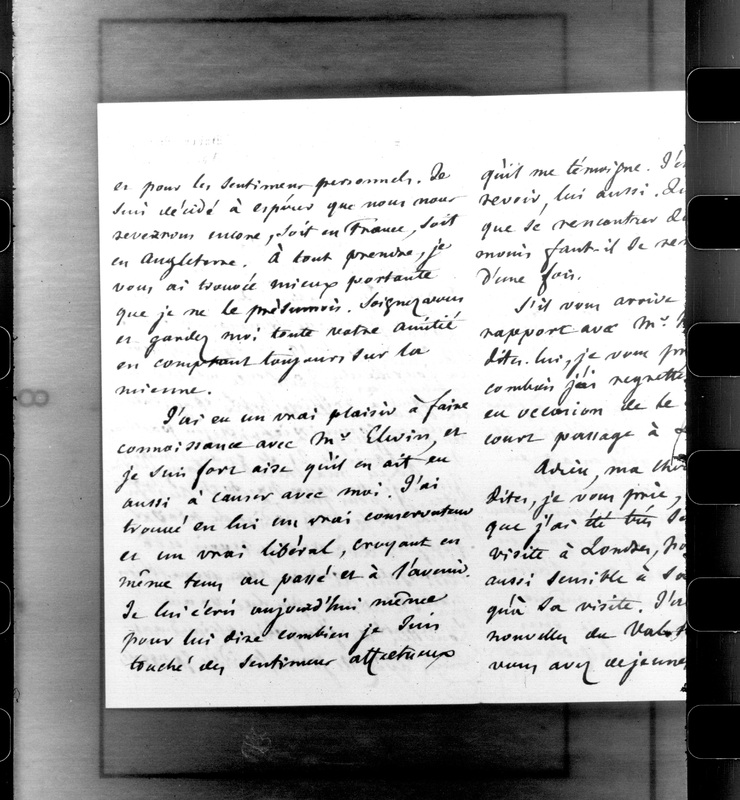 et pour les sentimens personnels. Je
suis décidé à espérer que nous nous
reverrons encore, soit en France, soit
en Angleterre. À tout prendre, je
vous ai trouvée mieux portante
que je ne le présumois. Soignez vous
et gardez moi toute votre amitié
en comptant toujours sur la
mienne.
J'ai eu un vrai plaisir à faire
connoissance avec Mr. Elwin, et
je suis fort aise qu'il en ait eu
aussi à causer avec moi. J'ai
trouvé en lui un vrai conservateur
et un vrai libéral, croyant en
même tems au passé et à l'avenir.
Je lui écris aujourd'hui même
pour lui dire combien je suis
touché des sentimens affectueux
qu'il me témoigne.
revoir, lui aussi.
que se rencontrer
moins faut-il se
d'une fois.
S'il vous arrive
rapport avec Mr.
dites-lui, je vous
combien j'ai regretté
eu occasion de le
court passage à
Adieu, ma
Dites, je vous prie,
que j'ai été très
visite à Londres,
aussi sensible à
qu'à sa visite.
nouvelles du
vous avez déjeuné